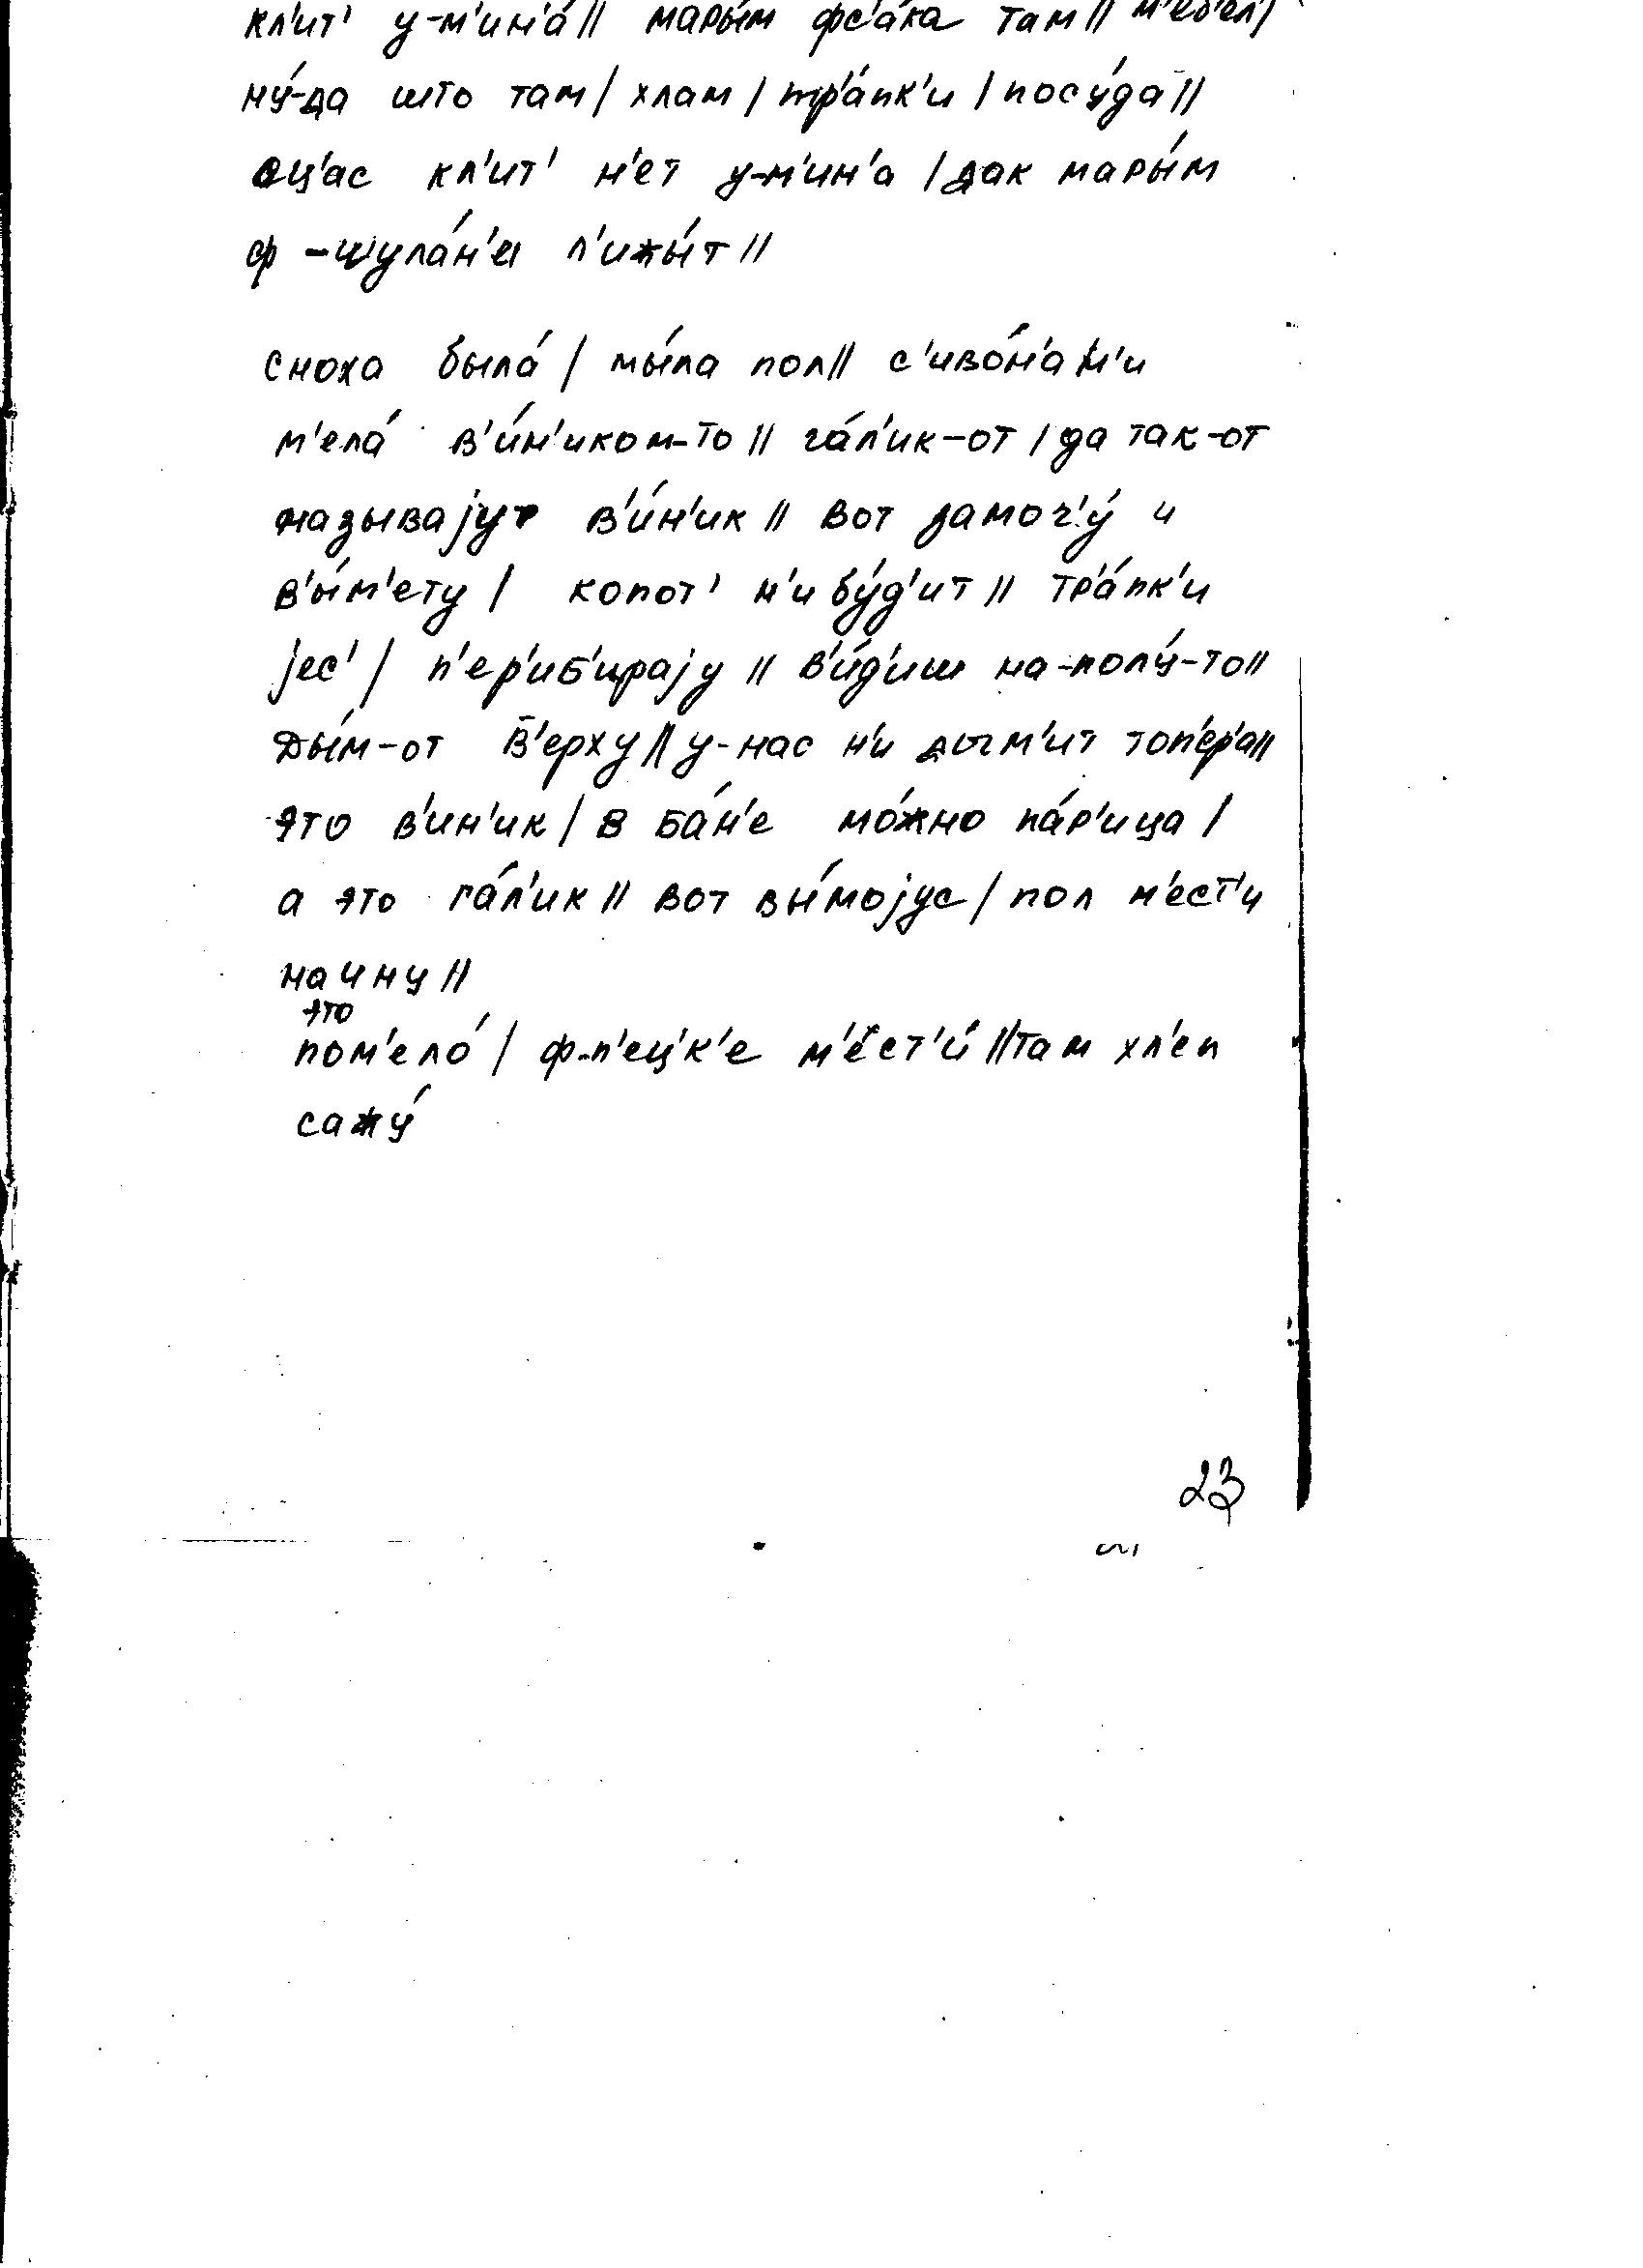 кл'ит' у-м'ин'á// мары́м фс'áка там// м'еб'ел/
нý-да што там/ хлам/ тр'áпк'и /посýда//
оц'ас кл'ит' н'ет у-м'ин'а /дак мары́м
ф-шулáн'е л'ижы́т//
сноха былá/ мы́ла пол// с'ивóн'а м'и
м'елá в'и́н'иком-то// гáл'ик-от/да так-от
называjут в'и́н'ик// вот замоч'ý и
в'ы́м'ету/ копот' н'и бýд'ит// тр'áпк'и
jес'/ п'ер'иб'ираjу// в'и́д'иш на-полý-то//
ды́м-от в'ерху// у-нас н'и дым'ит топ'ер'а//
это в'ин'ик/ в бáн'е мóжно пáр'ица/
а это гáл'ик// вот вы́моjус/ пол м'ест'и
начну//
это
пом'елó/ ф-п'ец'к'е м'ест'и́//там хл'еп
сажý
23